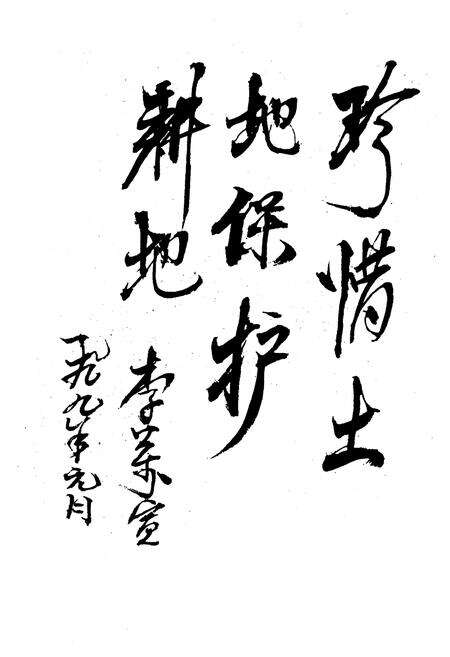 珍惜土
地保护
耕地
李宣
一九九九年元月